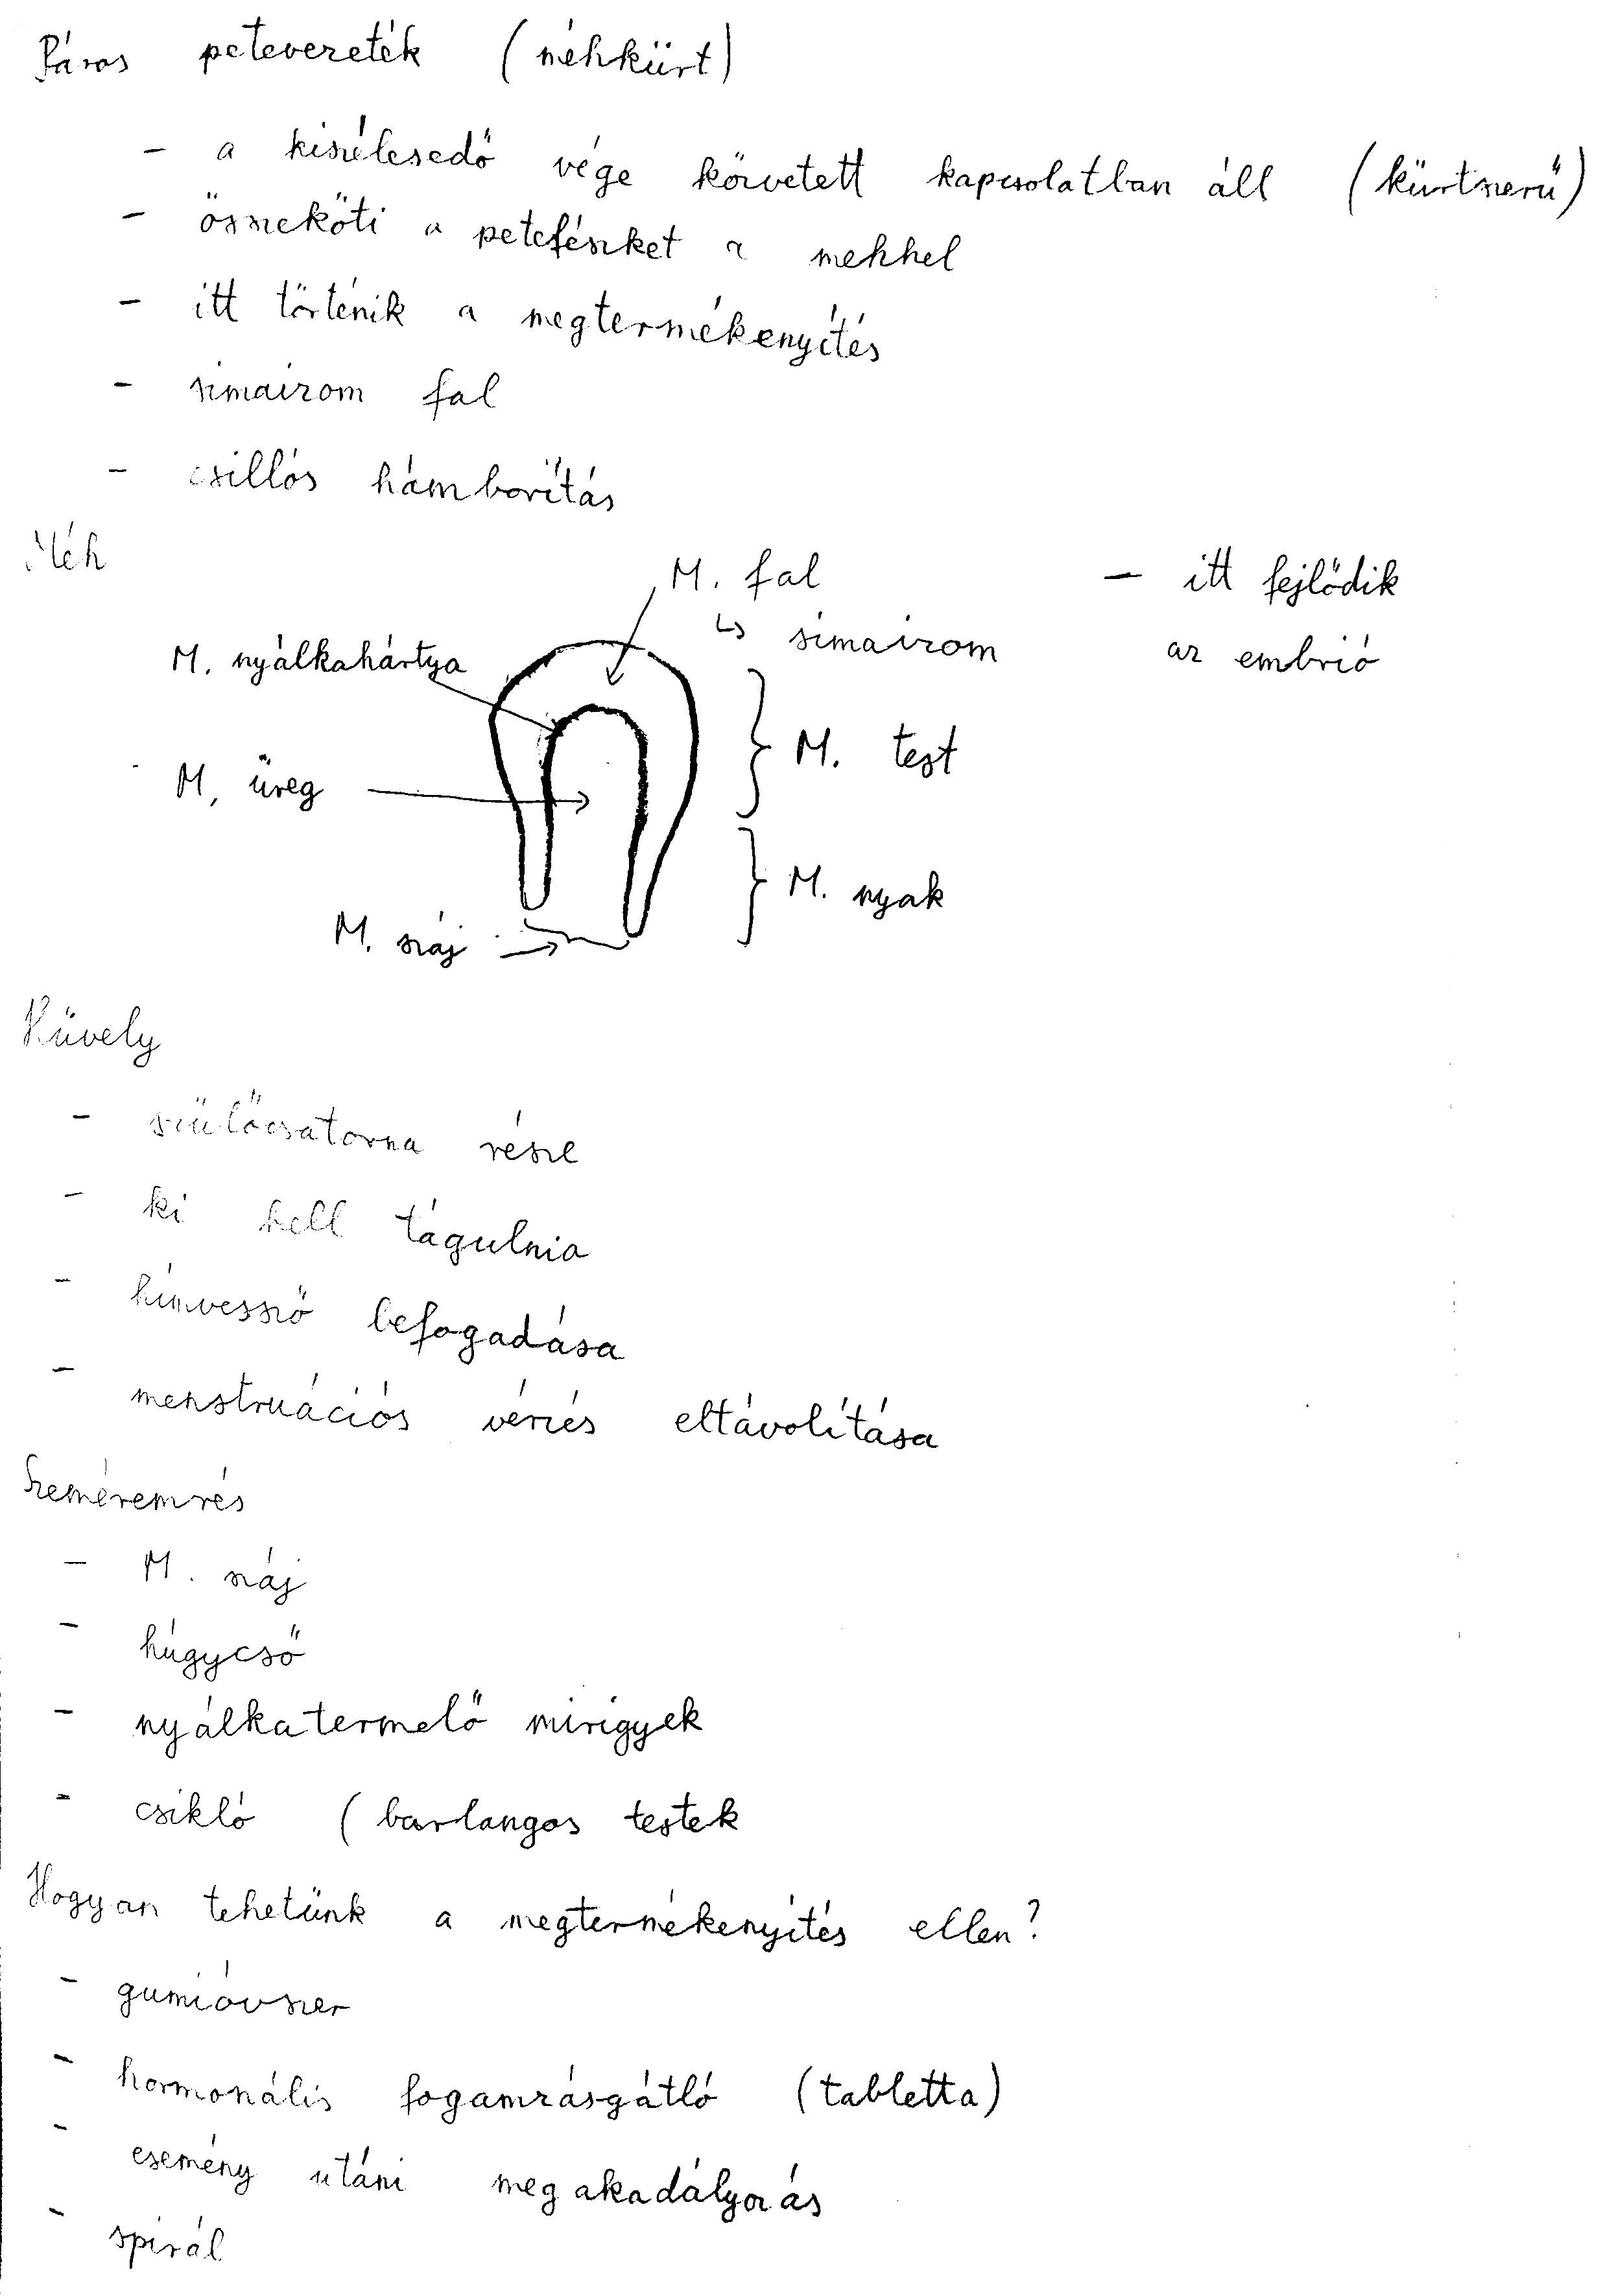 Páros petevezeték (méhkürt)
- a kiszélesedő vége közvetett kapcsolatban áll (kürtszerű)
- összeköti a petefészket a méhhel
- itt történik a megtermékenyítés
- simaizom fal
- csillós hámborítás
Méh
M. fal
↳ simaizom
- itt fejlődik
az embrió
M. nyálkahártya
M. test
M. üreg
M. nyak
M. száj
Hüvely
- szülőcsatorna része
- ki kell tágulnia
- hímvessző befogadása
- menstruációs vérzés eltávolítása
Szeméremrés
- M. száj
- húgycső
- nyálkatermelő mirigyek
- csikló (barlangos testek
Hogyan tehetünk a megtermékenyítés ellen?
- gumióvszer
- hormonális fogamzásgátló (tabletta)
- esemény utáni megakadályozás
- spirál